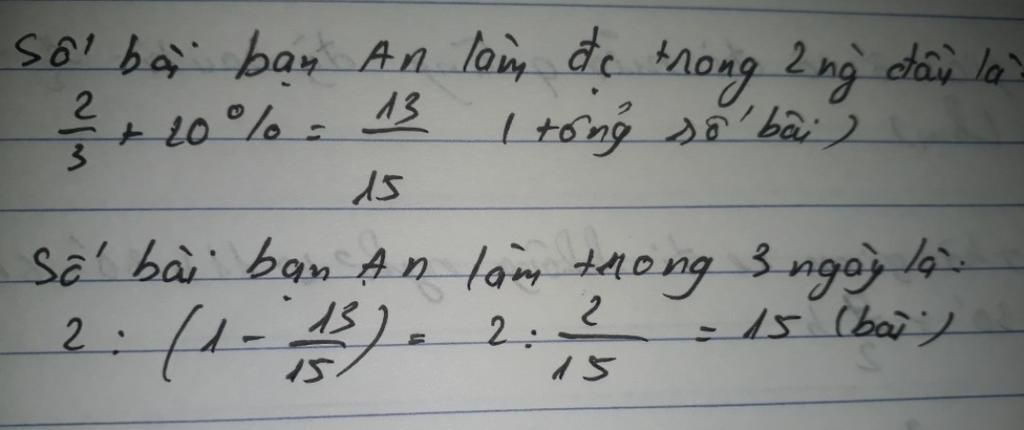 Số bài bạn An làm đc trong 2 ng đầu là:
2/3 + 20% = 13/15 (tổng số bài)
Số bài bạn An làm trong 3 ngày là:
2 : (1 - 13/15) = 2 : 2/15 = 15 (bài)